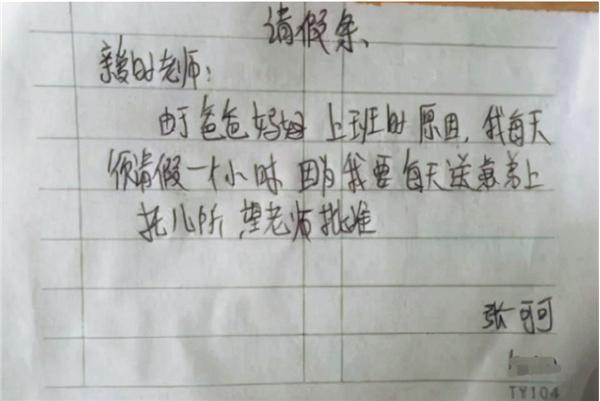 请假条
亲爱的老师:
由于爸爸妈妈上班的原因,我每天
须请假一个小时因为我要每天送弟弟上
托儿所,望老师批准
张可可
TY104